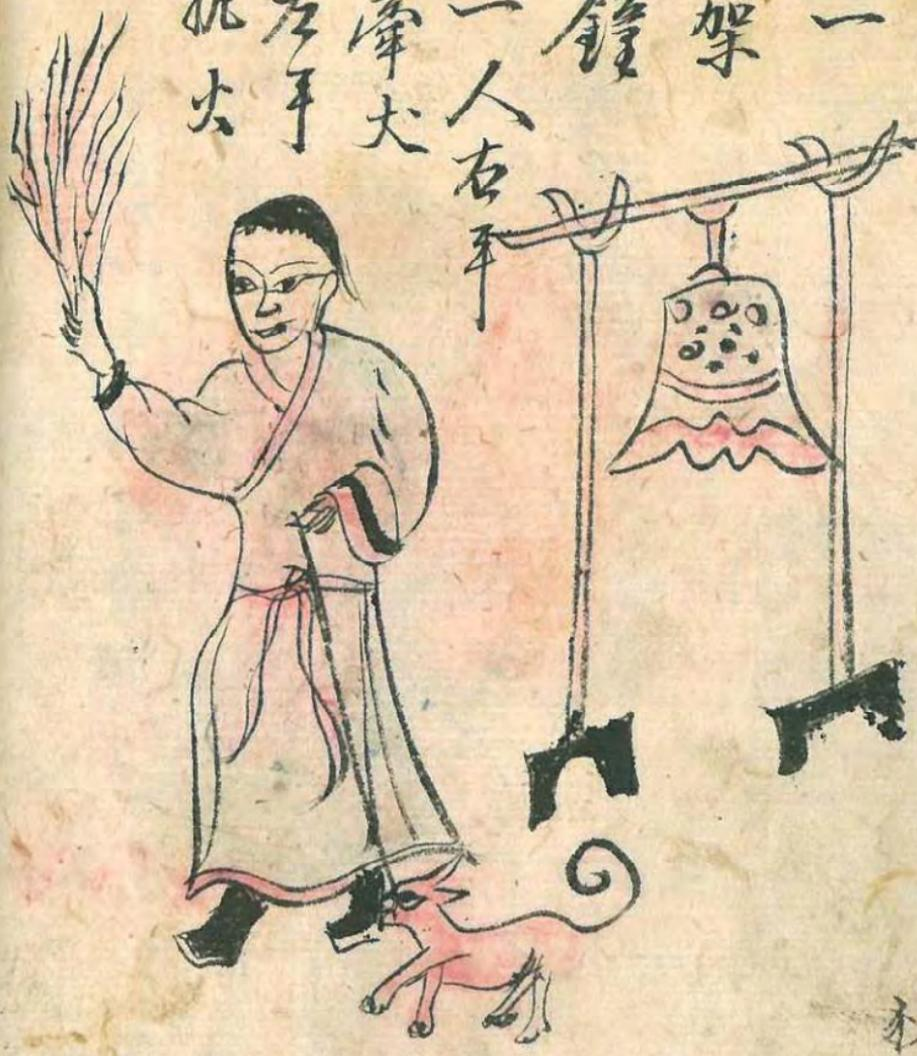 一
架
鐘
一人右手
牽犬
左手
火